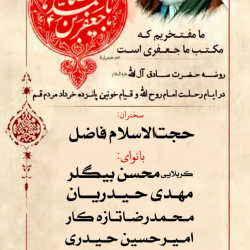 جعفر بن
ما مفتخریم که
مکتب ما جعفری است
روضه حضرت صادق آل الله
در ایام رحلت امام روح الله و قیام خونین پانزده خرداد مردم قم
سخنران:
حجت‌الاسلام فاضل
بانوای:
کربلایی محسن بیگلر
مهدی حیدریان
محمدرضا تازه کار
امیرحسین حیدری